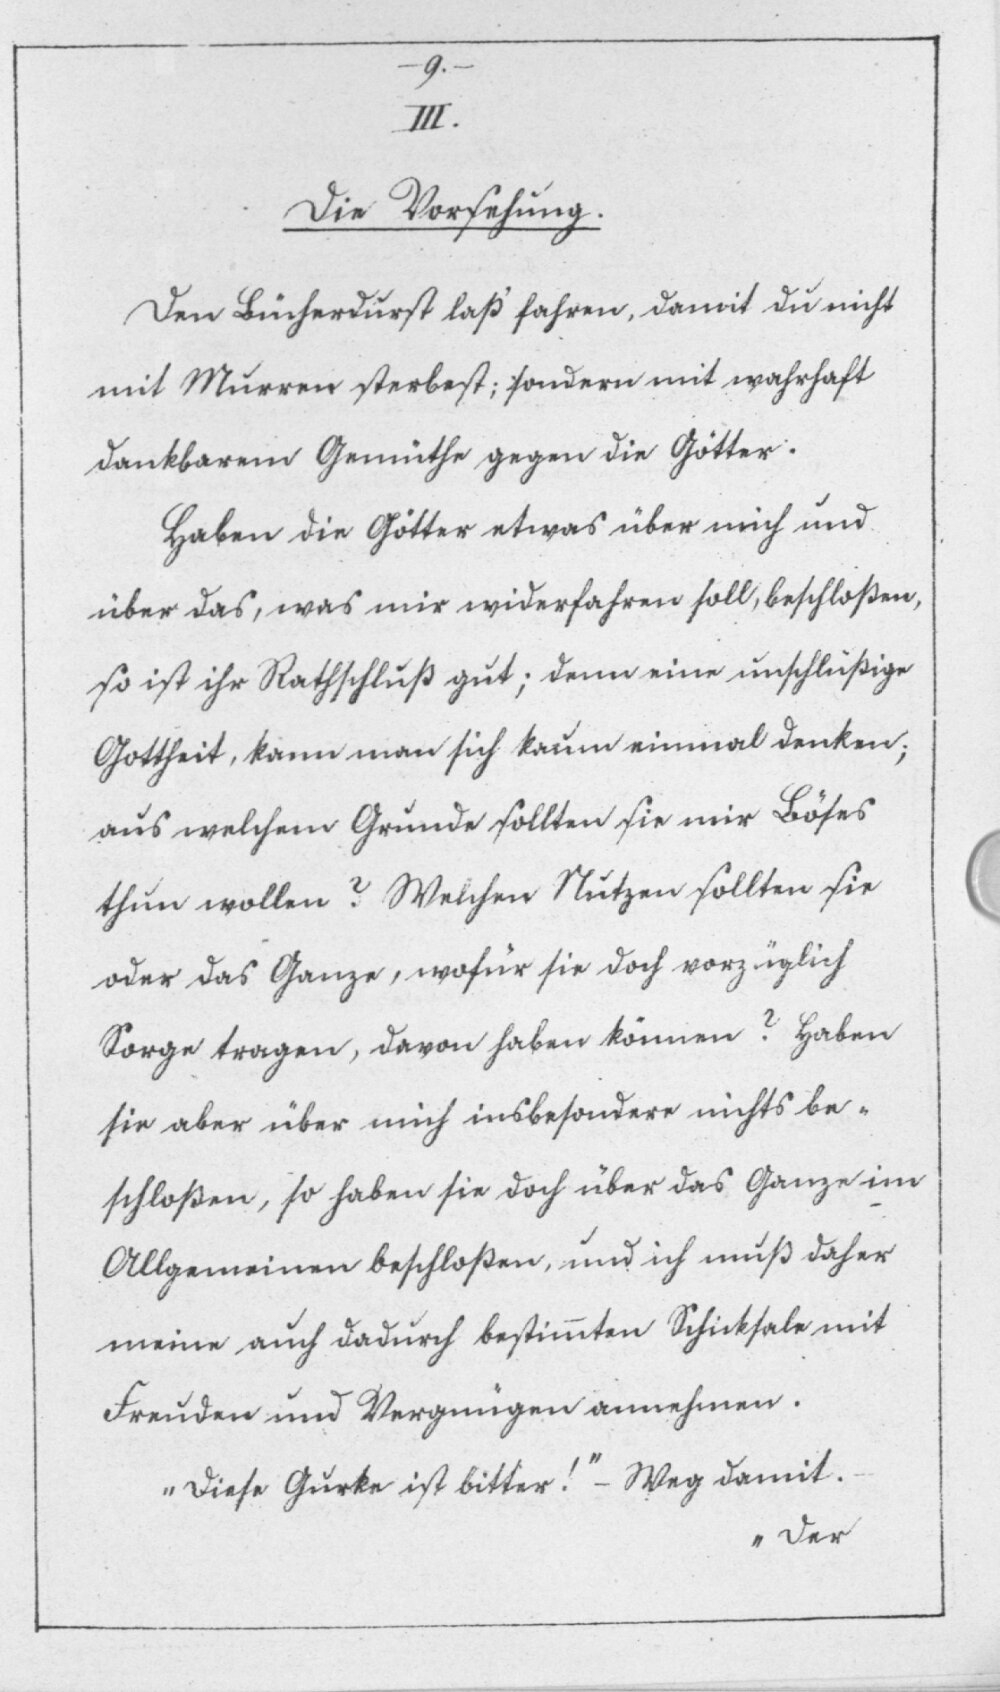 -9.-
III.
Die Vorsehung.
Den Bücherdurst laß fahren, damit du nicht
mit Murren sterbest; sondern mit wahrhaft
dankbarem Gemüthe gegen die Götter.
Haben die Götter etwas über mich und
über das, was mir widerfahren soll, beschloßen,
so ist ihr Rathschluß gut; denn eine unschlüßige
Gottheit, kann man sich kaum einmal denken;
aus welchem Grunde sollten sie mir Böses
thun wollen? Welchen Nutzen sollten sie
oder das Ganze, wofür sie doch vorzüglich
Sorge tragen, davon haben können? Haben
sie aber über mich insbesondere nichts be-
schloßen, so haben sie doch über das Ganze im
Allgemeinen beschloßen, und ich muß daher
meine auch dadurch bestim̅ten Schicksale mit
Freuden und Vergnügen annehmen.
"Diese Gurke ist bitter!" - Weg damit. -
"Der